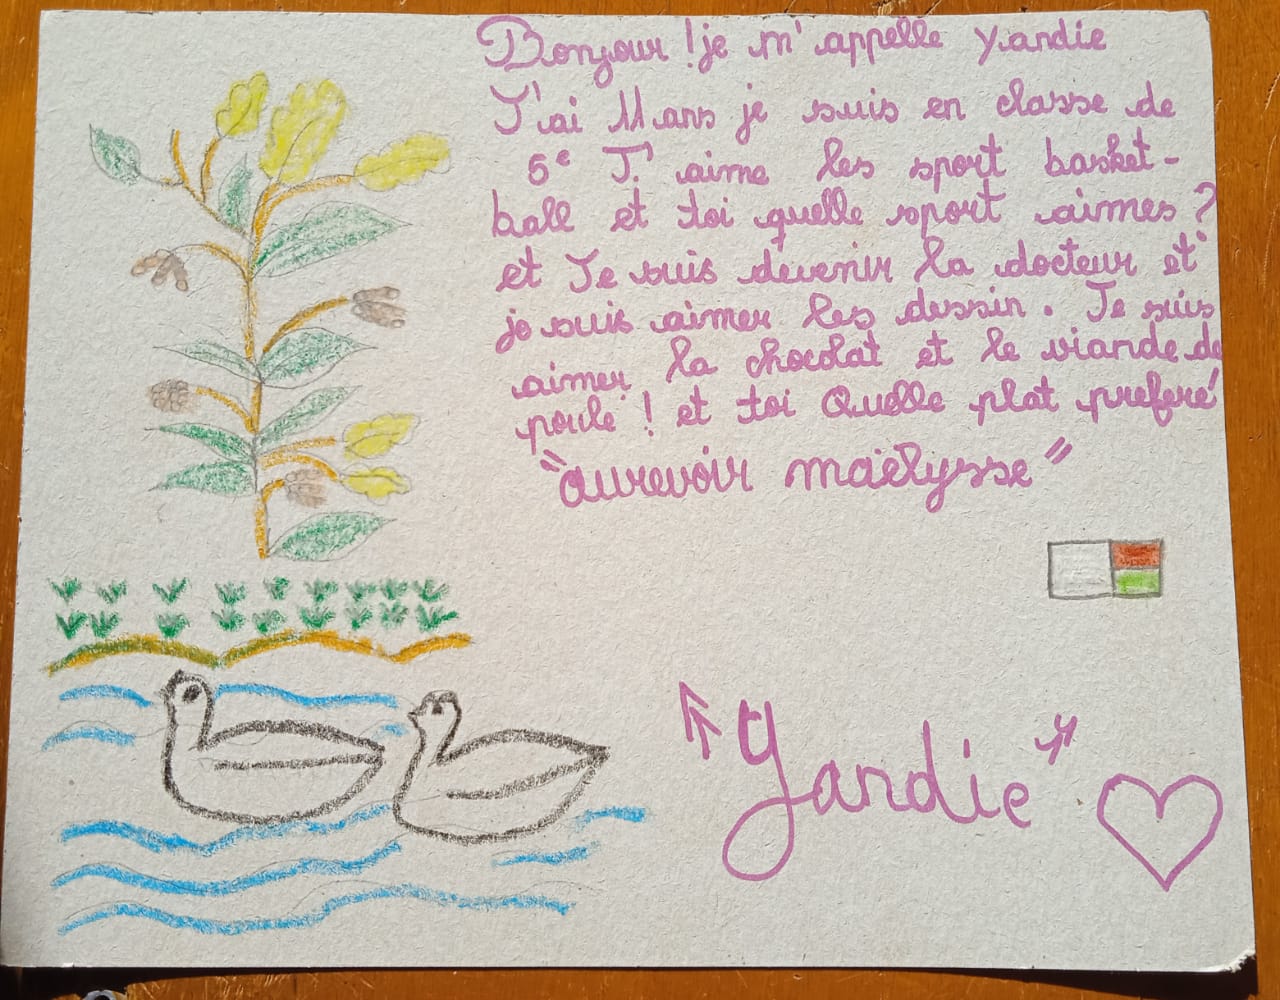 Bonjour ! je m'appelle yandie
J'ai 11 ans je suis en classe de
5e J'aime les sport basket-
ball et toi quelle sport aimes ?
et Je suis devenir la docteur et
je suis aimer les dessin . Je suis
aimer la chocolat et le viande de
poule ! et toi Quelle plat preferé
"aurevoir maëlysse"
"Yandie"